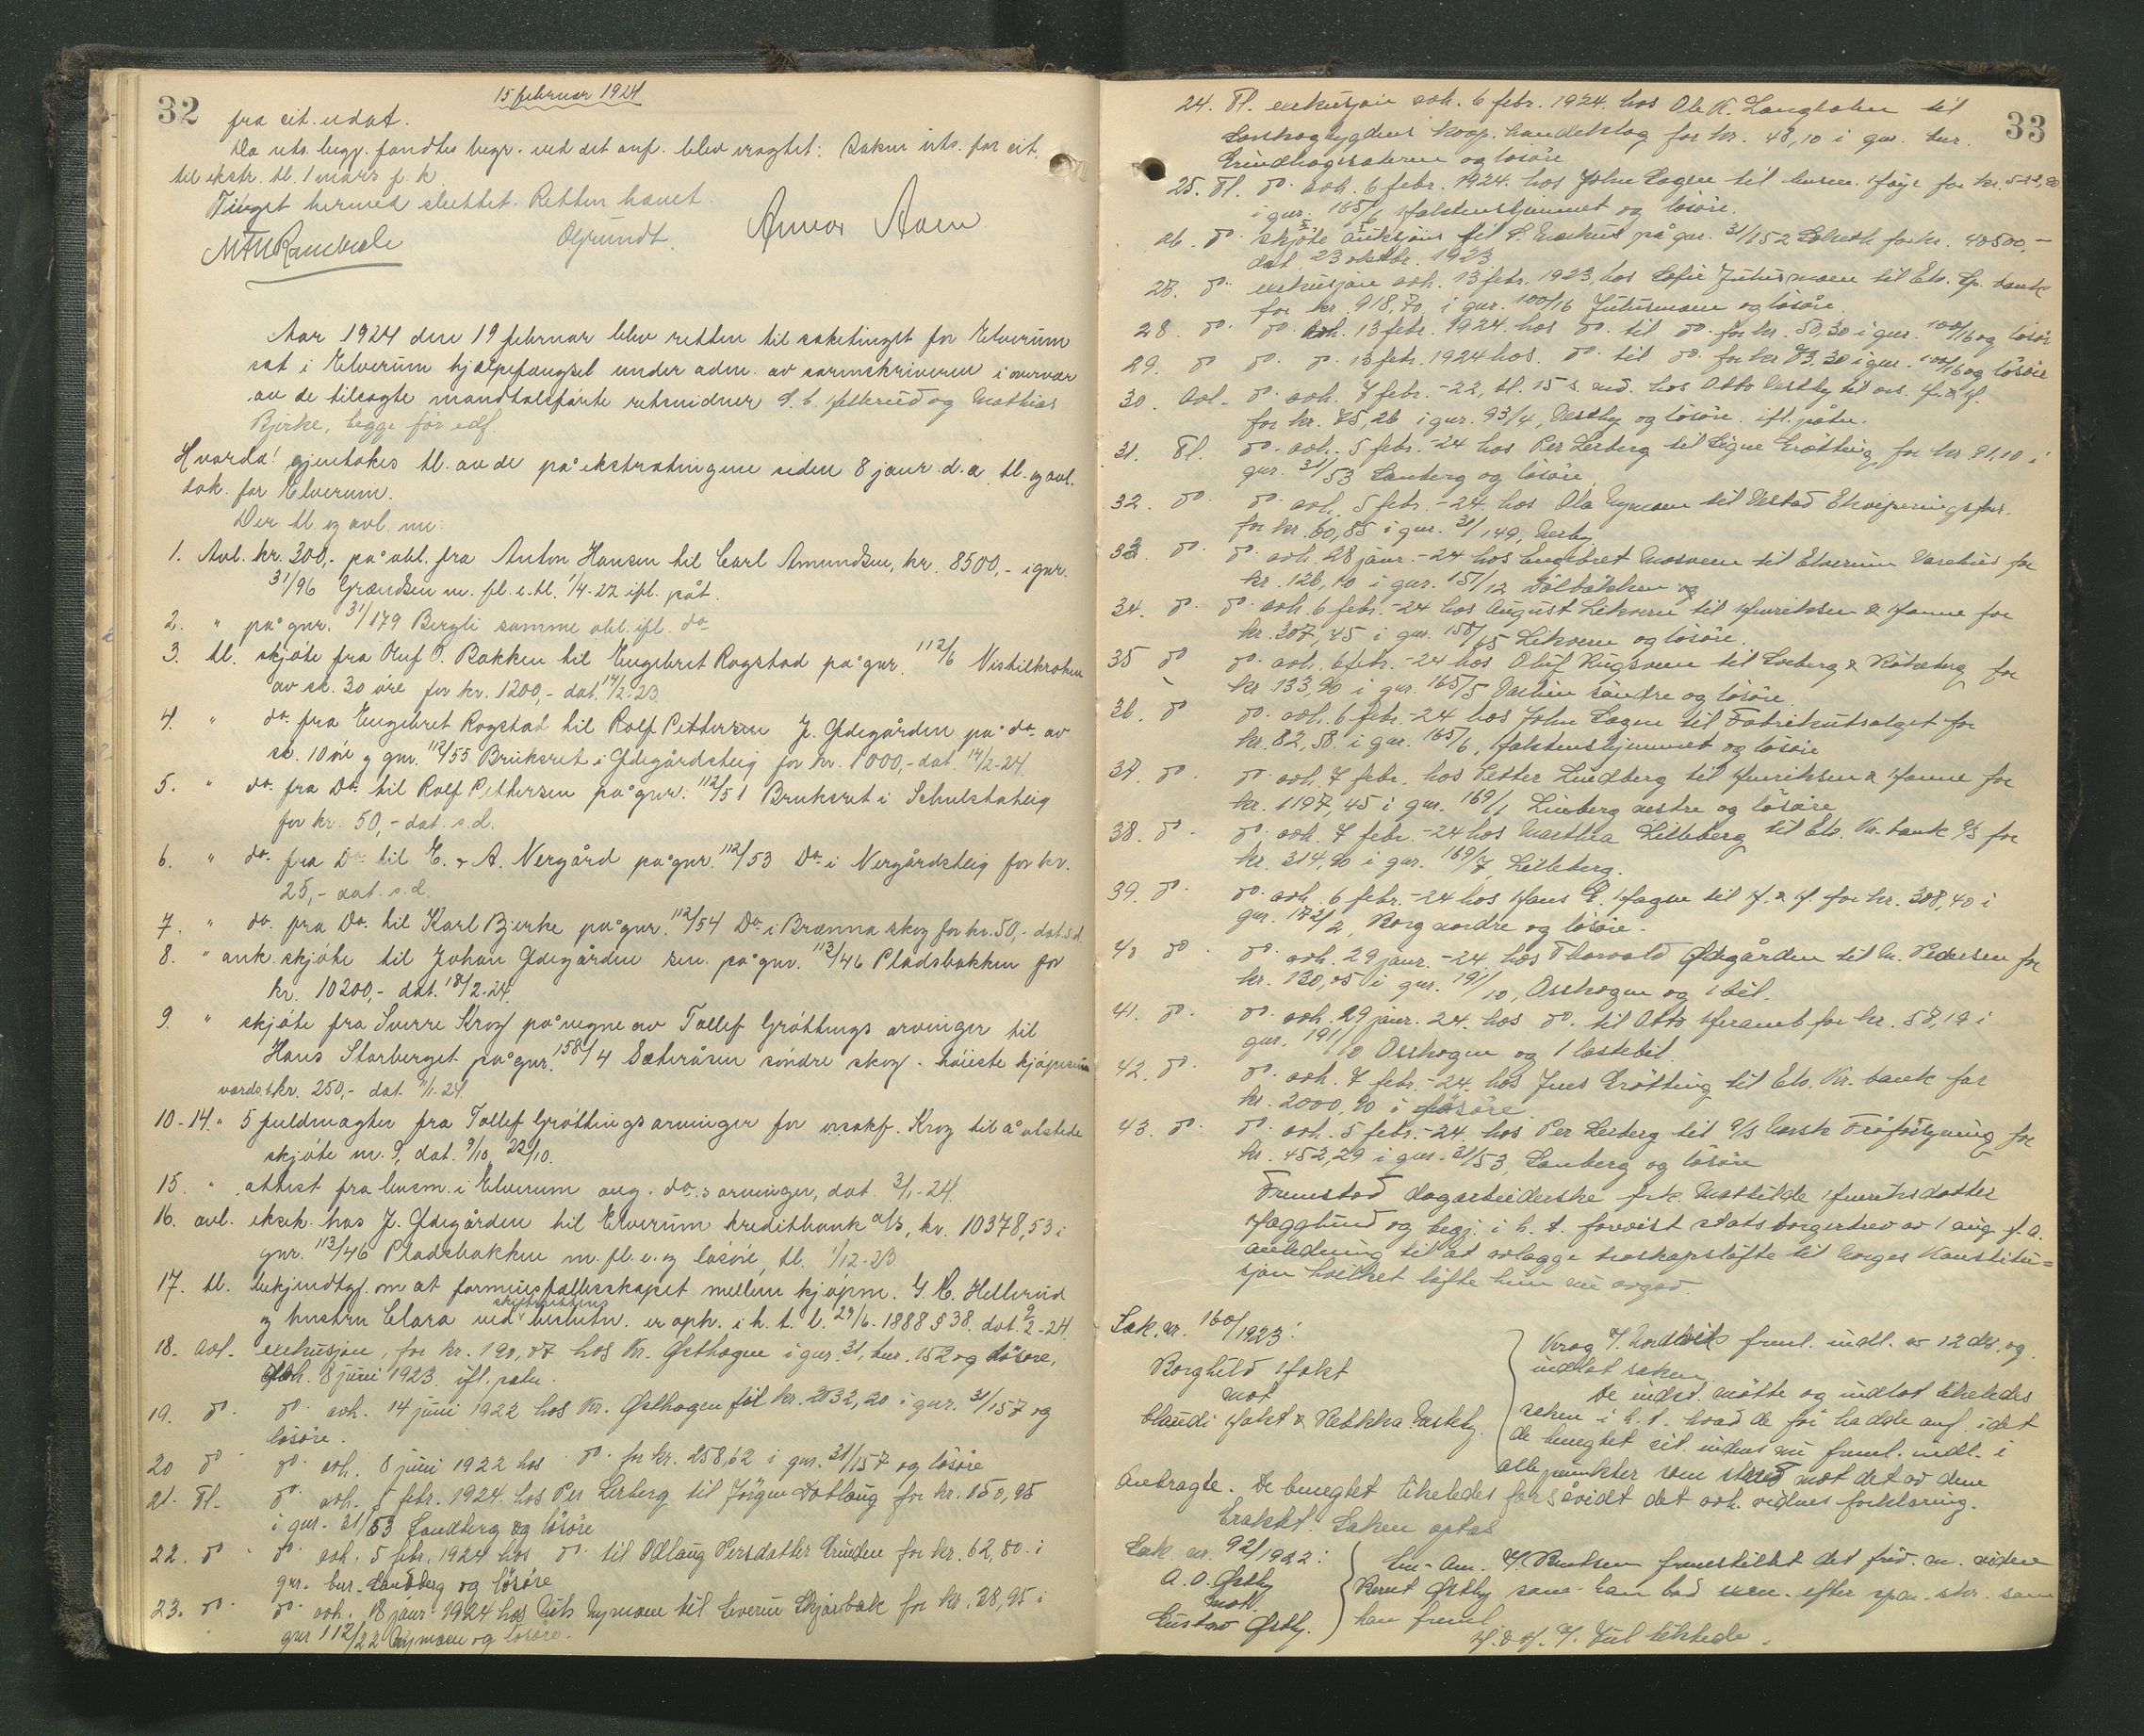 32
15 februar 1924
fra cit. utsat.
Da uts. begj. fandtes begr. ved det anf. blev eragtet: Saken uts. for cit.
til ekstr. tl. 1 mars f. k.
Tinget hermed sluttet. Retten hævet.
OGrundt. Annar Aaen
Aar 1924 den 19 februar blev retten til saketinget for Elverum
sat i Elverum hjælpefængsel under adm. av sorenskriveren i overvær
av de tilsagte mandtalsførte retsvidner S. C. Hellerud og Mathias
Bjerke, begge før edf.
Hvorda! gjentakes tl. av de på ekstratingene siden 8 janr. d. a. tl. og avl.
dok. for Elverum.
Der tl. og avl. nu:
1. Avl. kr. 300,- på obl. fra Anton Hansen til Carl Amundsen, kr. 8500,- i gnr.
31/96 Grændsen m. fl. e. tl. 1/4-22 ifl. påt.
2. " på gnr. 31/179 Bergli samme obl. ifl. do
3. tl. skjöte fra Oluf O. Bakken til Engebret Rogstad på gnr. 112/6 Nistilkroken
av sk. 30 öre for kr. 1200,- dat. 14/2-23
4. " do. fra Engebret Rogstad til Rolf Pettersen J. Ødegården på do. av
sk. 10 öre og gnr. 112/55 Bruksret i Ødegårdsteig for kr. 1000,- dat. 14/2-24.
5. " do. fra Do. til Rolf Pettersen på gnr. 112/51 Bruksret i Schulstadteig
for kr. 50,- dat. s.d.
6. " do. fra Do. til E. & A. Nergård på gnr. 112/53 Do. i Nergårdsteig for kr.
25,- dat. s.d.
7. " do. fra Do. til Karl Bjerke på gnr. 112/54 Do. i Brænna skog for kr. 50,- dat. s.d.
8. " auk. skjöte til Johan Ødegården sen. på gnr. 113/46 Pladsbakken for
kr. 10200,- dat. 18/2-24.
9. " skjöte fra Sverre Krog på vegne av Tollef Gröttings arvinger til
Hans Storberget på gnr. 158/4 Sæteråsen söndre skog - höieste kjöpesum
værds. kr. 250,- dat. 11/1-24.
10-14. " 5 fuldmagter fra Tollef Gröttings arvinger for o.r.sakf. Krog til å utstede
skjöte nr. 9, dat. 9/10, 22/10.
15. " attest fra lensm. i Elverum ang. do.s arvinger, dat. 3/1-24.
16. avl. eksek. hos J. Ødegården til Elverum kreditbank a/s, kr. 10378,53 i
gnr. 113/46 Pladsbakken m. fl. e. og lösöre, tl. 1/12-23
17. tl. bekjendtgj. om at formuesfællesskapet mellem kjöpm. G. K. Hellerud
og hustru Clara ved skifterettens beslutn. er oph. i h. t. l. 29/6-1888 § 38. dat. 9/2-24.
18. avl. exekusjon, for kr. 190,07 hos Kr. Østhagen i gnr. 31, bnr. 152 og lösöre,
avh. 8 juni 1923 ifl. paten.
19. do. do. avh. 14 juni 1922 hos Kr. Østhagen for kr. 2032,20 i gnr. 31/157 og
lösöre.
20 do do. avh. 8 juni 1922 hos do. for kr. 258,62 i gnr. 31/157 og lösöre
21. Tl. do. avh. 5 febr. 1924. hos Per Lerberg til Jörgen Dobloug for kr. 150,95
i gnr. 31/53 Sandberg og lösöre
22. do do. avh. 5 febr. 1924 hos do. til Odlaug Persdatter Grinden for kr. 62,80 i
gnr. bnr. Sandberg og lösöre
23. do. do. avh. 18 janr. 1924 hos Nils Nymoen til Severin Skjærbæk for kr. 28,95 i
gnr 112/22 Nymoen og lösöre.
33
24. Tl. exekusjon avh. 6 febr. 1924. hos Ole K. Langholen til
Sörskogbygdens koop. handelslag for kr. 48,10 i gnr. bnr.
Grindhagesæteren og lösöre
25. Tl. do. avh. 6 febr. 1924. hos John Sagen til lensm. Höye for kr.
i gnr. 165/6 Holstenshjemmet og lösöre.
26. do. skjöte auksjons til S. Markus på gnr. 31/152 Solheth for kr. 40500,-
dat. 23 oktbr. 1923
27. do. exekusjon avh. 13 febr. 1923, hos Sofie Jutusmoen til Elv. Sp. bank
for kr. 918,70 i gnr. 100/16 Jutusmoen og lösöre
28. do. do. avh. 13 febr. 1924. hos do. til do. for kr. 50,30 i gnr. 100/16 og lösöre
29. do do. do. 13 febr. 1924 hos. do. til do. for kr 73.30 i gnr. 100/16 og lösöre
30. Avl. do. avh. 7 febr. -22, tl. 15 s. md. hos Otto Vestby til ors. H. & H.
for kr. 75,26 i gnr. 93/4, Vestby og lösöre. ifl. påtn.
31. Tl. do. avh. 5 febr. -24 hos Per Lerberg til Signe Grötting for kr 91,10 i
gnr. 31/53 Sandberg og lösöre
32. do. do. avh. 5 febr. -24. hos Ola Nymoen til Ulstad Ekviperingsfor.
for kr. 60,85 i gnr. 31/149, Nerby
33. do. do. avh. 28 janr. -24 hos Engebret Mosveen til Elverum Varehus for
kr. 126,10 i gnr. 151/12 Dölbakken og
34. do. do. avh. 6 febr. -24 hos August Lihoven til Henriksen & Hanne for
kr. 307,45 i gnr. 158/65 Lihoven og lösöre.
35 do do. avh. 6 febr. -24 hos Oluf Rugsveen til Soeberg & Röhneberg for
kr 133,90 i gnr. 165/5 Vaslien söndre og lösöre.
36. do do. avh. 6 febr. -24 hos John Sagen til Fabrikutsalget for
kr. 82,58. i gnr. 165/6, Holstenshjemmet og lösöre
37. do. do. avh. 7 febr. hos Petter Lindberg til Henriksen & Hanne for
kr. 1197,45 i gnr. 169/1 Linberg vestre og lösöre
38. do. do. avh. 7 febr. -24 hos Marthea Lilleberg til Elv. Kr. bank a/s for
kr. 314,90 i gnr. 169/7, Lilleberg.
39. do. do. avh. 6 febr. -24 hos Hans E. Hagen til H. & H. for kr. 308,40 i
gnr. 172/2, Borg nordre og lösöre.
40 do. do. avh. 29 janr. -24 hos Thorvald Ødegården til M. Pedersen for
kr. 130,05 i gnr. 191/10, Osskogen og 1 bil.
41. do. do. avh. 29 janr. 24. hos do. til Otto Hernmb for kr. 57,19 i
gnr. 191/10 Osskogen og 1 lastebil.
42. do. do. avh. 7 febr. -24. hos Jens Grötting til Elv. Kr. bank for
kr. 2000,90 i lösöre.
43. do. do. avh. 5 febr. -24. hos Per Lerberg til a/s Norsk Fröforsyning for
kr. 452,29 i gnr. 31/53, Sandberg og lösöre
Fremstod dagarbeiderske frk. Mathilde Henriksdatter
Hagglund og begj. i h. t. forevist statsborgerbrev av 1 aug. f.a.
anledning til at avlægge troskapslöfte til Norges Konstitu=
sjon hvilket löfte hun nu avgav.
Sak. nr. 160/1923:
Borghild Holst
mot
Claudi Holst & Rebekka Vestby.
Krog v. Nordkvik freml. indl. av 12 ds. og
indlot saken.
De indst. mötte og indlot likeledes
saken i h. t. hvad de för hadde anf. idet
de benegtet cit. indens nu freml. indl. i
alle punkter som stred mot det av dem
Anbragte. De benegtet likeledes forsåvidt det avh. vidnes forklaring.
Eraktet: Saken optas
Sak nr. 92/1922:
A. O. Østby
mot.
Gustav Østby.
Em. Am. v. Knutsen fremstillet det förd. m. vidne
Bernt Østby som han bad exam. efter spm. skr. som
han freml.
H. & H. v. Juul likelede.